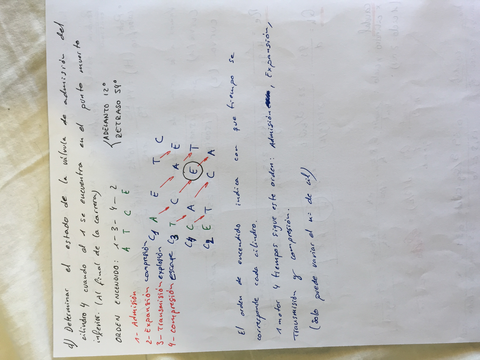 a) Determinar el estado de la válvula de admisión del
cilindro 4 cuando el 1 se encuentra en el punto muerto
inferior. (al final de la carrera)
ADELANTO 12º
RETRASO 59º
ORDEN ENCENDIDO: 1-3-4-2
A T C E
1- Admisión
2- Expansión compresión
3- Transmisión explosión
4- compresión escape
C1 A E T C
C3 T C A E
C4 C A E T
C2 E T C A
El orden de encendido indica con que tiempo se
corresponde cada cilindro.
1 motor 4 tiempos sigue este orden: Admisión, Expansión,
Transmisión y compresión.
(Solo puede variar el nº de cil)